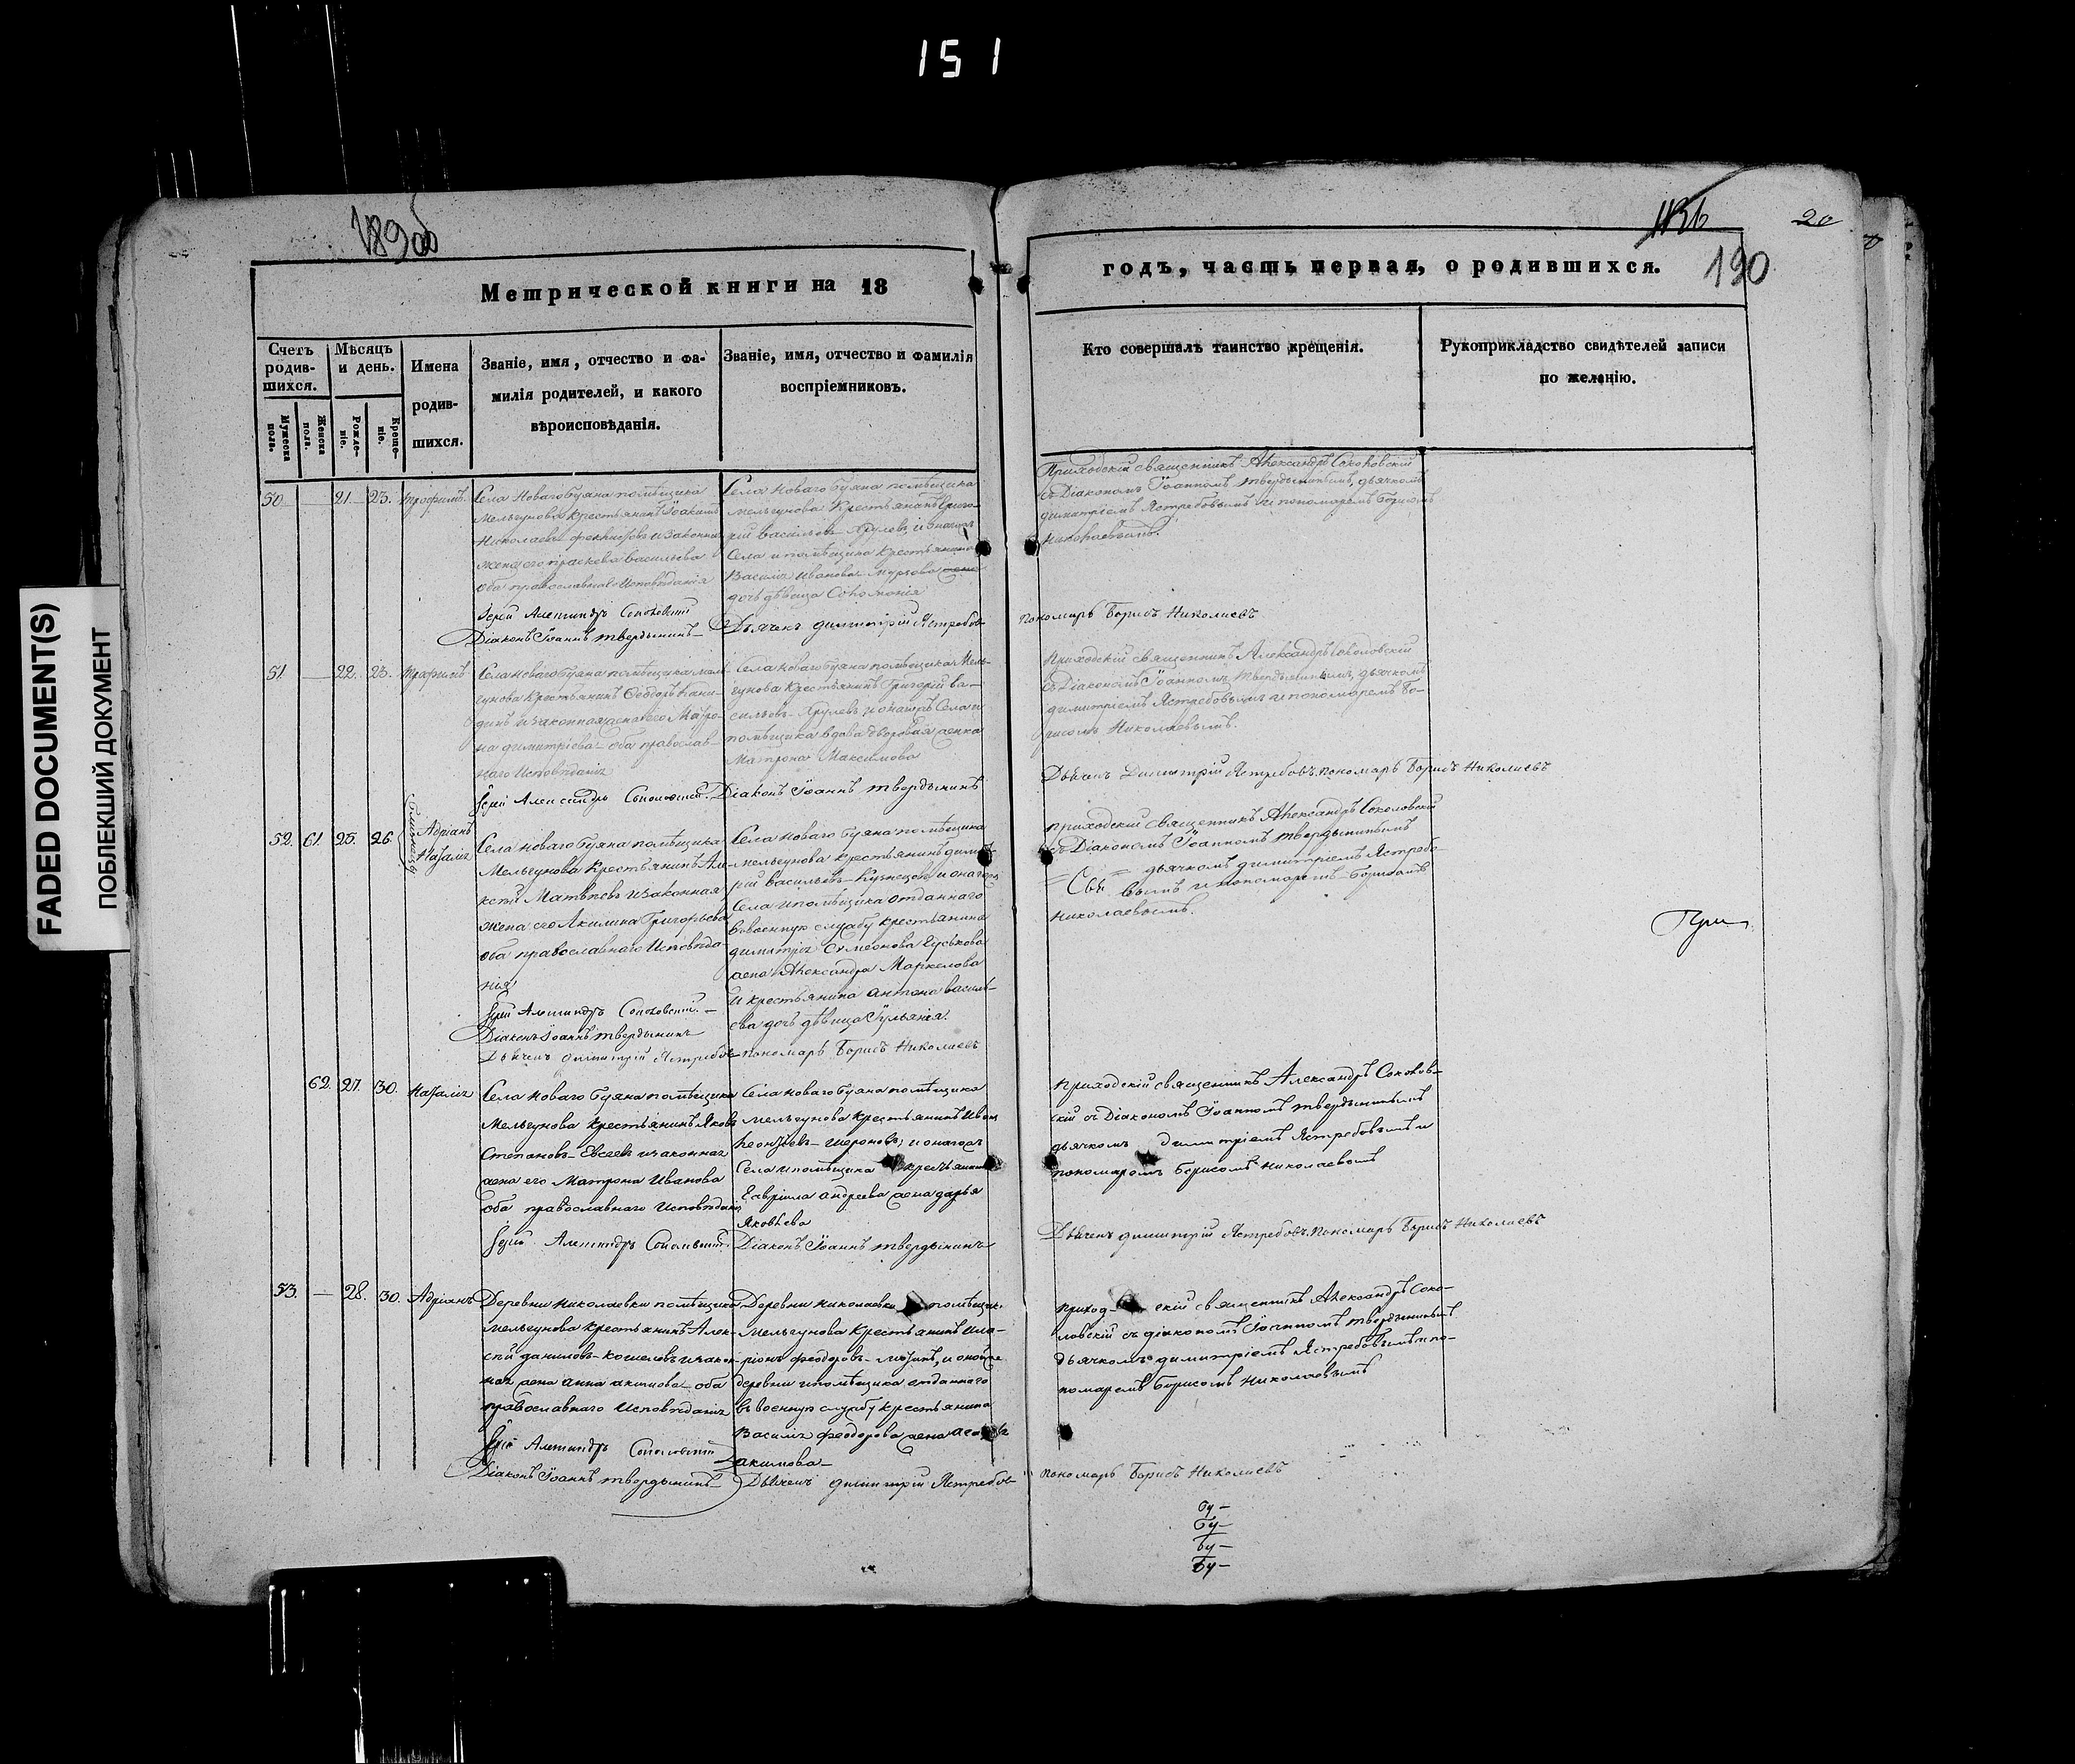 151
FADED DOCUMENT(S)
ПОБЛЕКШИЙ ДОКУМЕНТ
189об
20
190
Метрической книги на 18
годъ, часть первая, о родившихся.
Счетъ родив-шихся.
Мужеска пола.
Женска пола.
Мѣсяцъ и день.
Рожде-ніе.
Креще-ніе.
Имена родив-шихся.
Званіе, имя, отчество и фа-
милія родителей, и какого
вѣроисповѣданія.
Званіе, имя, отчество и фамилія
воспріемниковъ.
Кто совершалъ таинство крещенія.
Рукоприкладство свидѣтелей записи
по желанію.
50. — 21. 23. Трофимъ.
Села Новаго Буяна помѣщика
Мельгунова Крестьянинъ Іоакимъ
Николаевъ и законная
жена его Праскева Васильева
оба православнаго Исповѣданія
Іерей Александръ Соколовскій
Діаконъ Іоаннъ Твердынинъ
Села Новаго Буяна помѣщика
Мельгунова Крестьянинъ Григо-
рій Васильевъ Хрулевъ, и онагожъ
Села и помѣщика крестьянина
Василія Иванова
дочь дѣвица Соломонія
Дьячекъ Димитрій Ястребовъ
Приходскій священникъ Александръ Соколовскій
съ Діакономъ Іоанномъ Твердынинымъ, дьячкомъ
Димитріемъ Ястребовымъ и пономаремъ Борисомъ
Николаевымъ.
пономарь Борисъ Николаевъ
51. — 22. 23. Трофимъ
Села Новаго Буяна помѣщика Мель-
гунова Крестьянинъ Ѳеодоръ
и законная жена его Матро-
на Димитріева оба православ-
наго Исповѣданія
Іерей Александръ Соколовскій.
Села Новаго Буяна помѣщика Мель-
гунова Крестьянинъ Григорій Ва-
сильевъ Хрулевъ, и онагожъ Села и
помѣщика вдова дворовая женка
Матрона Максимова
Діаконъ Іоаннъ Твердынинъ
Приходскій священникъ Александръ Соколовскій
съ Діакономъ Іоанномъ Твердынинымъ, дьячкомъ
Димитріемъ Ястребовымъ и пономаремъ Бо-
рисомъ Николаевымъ.
Дьячекъ Димитрій Ястребовъ. пономарь Борисъ Николаевъ
52. 61. 25. 26. близнецы Адріанъ Наталія
Села Новаго Буяна помѣщика
Мельгунова Крестьянинъ Але-
ксѣй Матвѣевъ и законная
жена его Акилина Григорьева
оба православнаго Исповѣда-
нія
Іерей Александръ Соколовскій. —
Діаконъ Іоаннъ Твердынинъ
Дьячекъ Димитрій Ястребовъ
Села Новаго Буяна помѣщика
Мельгунова крестьянинъ Димит-
рій Васильевъ Кузнецовъ и онагожъ
Села и помѣщика отданнаго
въ военную службу крестьянина
Димитрія Симеонова
жена Александра Маркелова
и крестьянина Антона Василь-
ева дочь дѣвица Іульянія.
пономарь Борисъ Николаевъ
Приходскій священникъ Александръ Соколовскій
съ Діакономъ Іоанномъ Твердынинымъ
дьячкомъ Димитріемъ Ястребо-
вымъ и пономаремъ Борисомъ
Николаевымъ.
62. 27. 30. Наталія
Села Новаго Буяна помѣщика
Мельгунова крестьянинъ Яковъ
Степановъ Евсеевъ и законная
жена его Матрона Иванова
оба православнаго Исповѣданія
Іерей Александръ Соколовскій.
Села Новаго Буяна помѣщика
Мельгунова крестьянинъ Иванъ
Леонтьевъ и онагожъ
Села и помѣщика крестьянина
Гавріила Андреева жена Дарья
Яковлева
Діаконъ Іоаннъ Твердынинъ
Приходскій священникъ Александръ Соколов-
скій съ Діакономъ Іоанномъ Твердынинымъ
дьячкомъ Димитріемъ Ястребовымъ и
пономаремъ Борисомъ Николаевымъ
Дьячекъ Димитрій Ястребовъ. Пономарь Борисъ Николаевъ
53. — 28. 30. Адріанъ
Деревни Николаевки помѣщика
Мельгунова Крестьянинъ Алек-
сѣй Даниловъ Кошелевъ и закон-
ная жена Анна Акимова оба
православнаго Исповѣданія
Іерей Александръ Соколовскій
Діаконъ Іоаннъ Твердынинъ
Деревни Николаевки помѣщика
Мельгунова Крестьянинъ Ила-
ріонъ Феодоровъ и онойже
деревни и помѣщика отданнаго
въ военную службу крестьянина
Василія Феодорова жена
Акимова
Дьячекъ Димитрій Ястребовъ
Приходскій священникъ Александръ Соко-
ловскій съ діакономъ Іоанномъ Твердынинымъ
дьячкомъ Димитріемъ Ястребовымъ и по-
номаремъ Борисомъ Николаевымъ
пономарь Борисъ Николаевъ
бу —
бу —
бу —
бу —